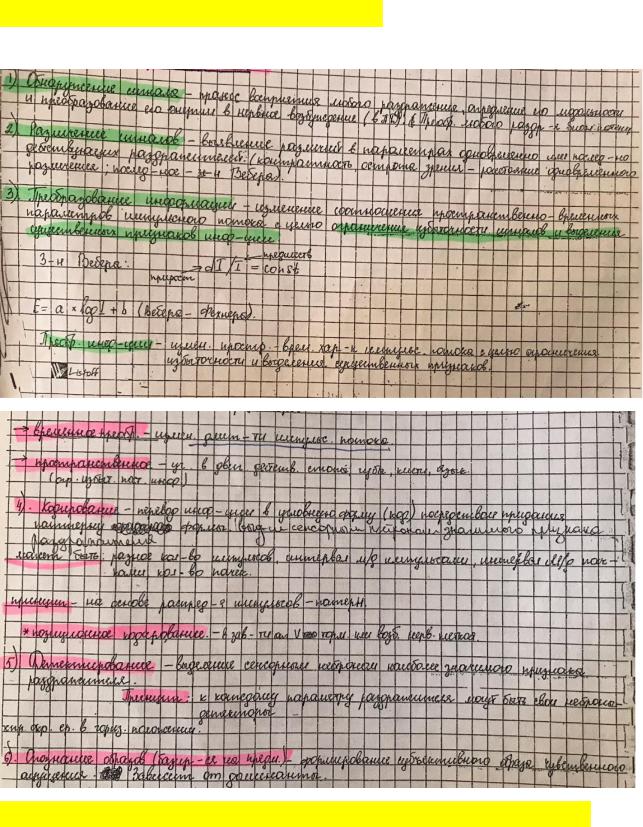 1) Обнаружение сигнала – процес восприятия любого раздражения, определение его модальности
и преобразование его энергии в нервное возбуждение
2) Различение сигналов – выявление различий в параметрах одновременно или послед-но
действующих раздражителей. (контрастность, острота зрения – расстояние одновременного
различение; послед-ное – з-н Вебера).
3) Преобразование информации – изменение соотношения пространственно-временных
параметров импульсного потока с целью ограничение избыточности сигналов и выделения
существенных признаков инф-ции
З-н Вебера: прирост → dI/I = const
E = a × log I + b (Вебера – Фехнера).
Преобр. инф-ции – измен. простр.-врем. хар-к импульс. потока с целью ограничения
избыточности и выделения существенных признаков.
Listoff
→ временное преобр. – измен. длит-ти импульс. потока.
→ пространственное – уч. в двиг. действ. стопы, губы, кисти, язык
4). Кодирование – перевод инф-ции в условную форму (код) посредством придания
паттерну формы. сенсорным нейроном значимого признака
раздражителя
может быть: разное кол-во импульсов, интервал м/д импульсами, интервал м/д пач-
ками, кол-во пачек.
принцип – на основе распред-я импульсов – патерн.
*позиционное кодирование – в зав-ти от торм. или возб. нерв. клеток.
5) Детектирование – выделение сенсорным нейроном наиболее значимого признака
раздражителя.
Принцип: к каждому параметру раздражителя могут быть свои нейроны-
детекторы
ср. в гориз. положении.
6). Опознание образов – формирование субъективного образа чувственного
ощущения. Зависит от доминанты.